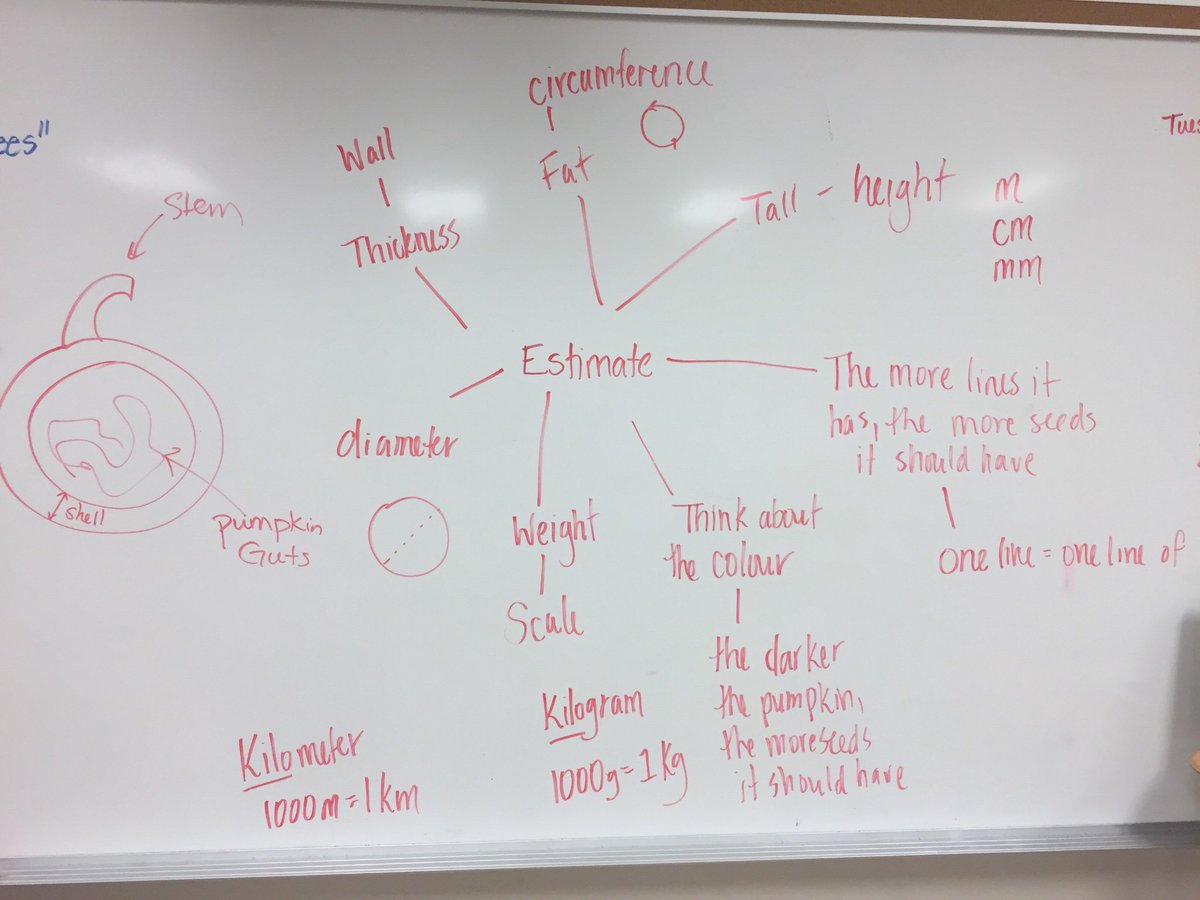 ees"
Stem
shell
pumpkin
Guts
Wall
Thickness
circumference
Fat
Tall - height
m
cm
mm
Estimate
diameter
Weight
Scale
Think about
the colour
the darker
the pumpkin,
the more seeds
it should have
The more lines it
has, the more seeds
it should have
one line = one line of
Kilometer
1000m = 1 km
Kilogram
1000g = 1 Kg
Tues